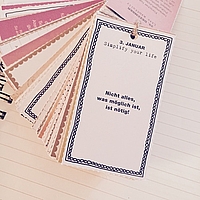 3. JANUAR
Simplify your life.
Nicht alles,
was möglich ist,
ist nötig!